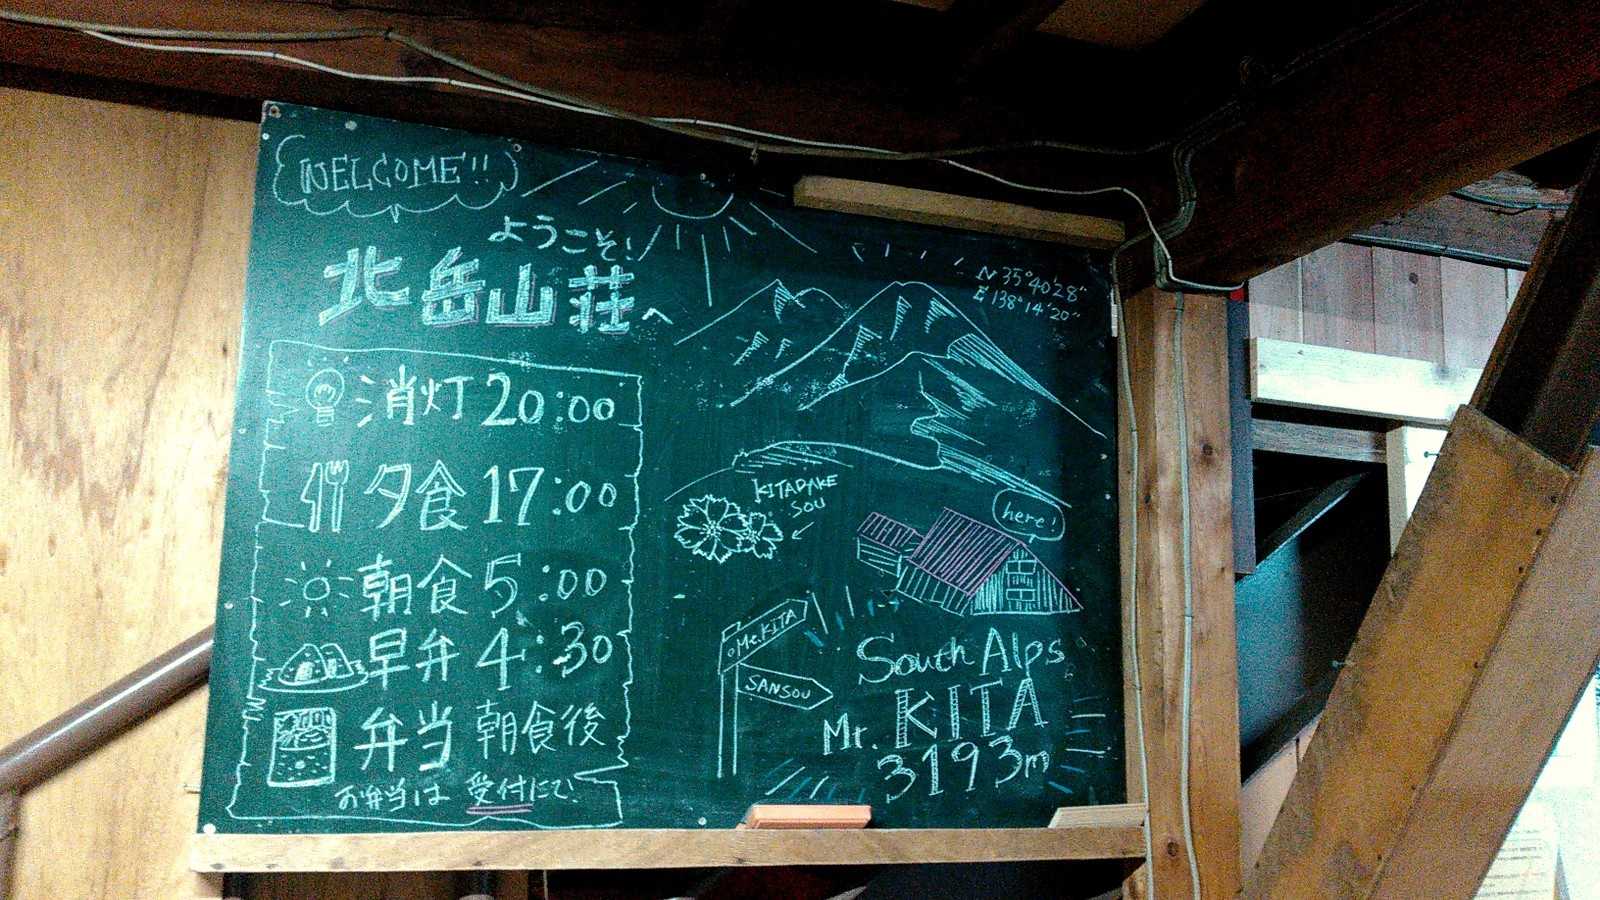 WELCOME!!
ようこそ!
北岳山荘へ
消灯 20:00
夕食 17:00
朝食 5:00
早弁 4:30
弁当 朝食後
お弁当は 受付にて!
N 35°40'28"
E 138°14'20"
KITADAKE
SOU
here!
Mt.KITA
SANSOU
South Alps
Mt. KITA
3193m